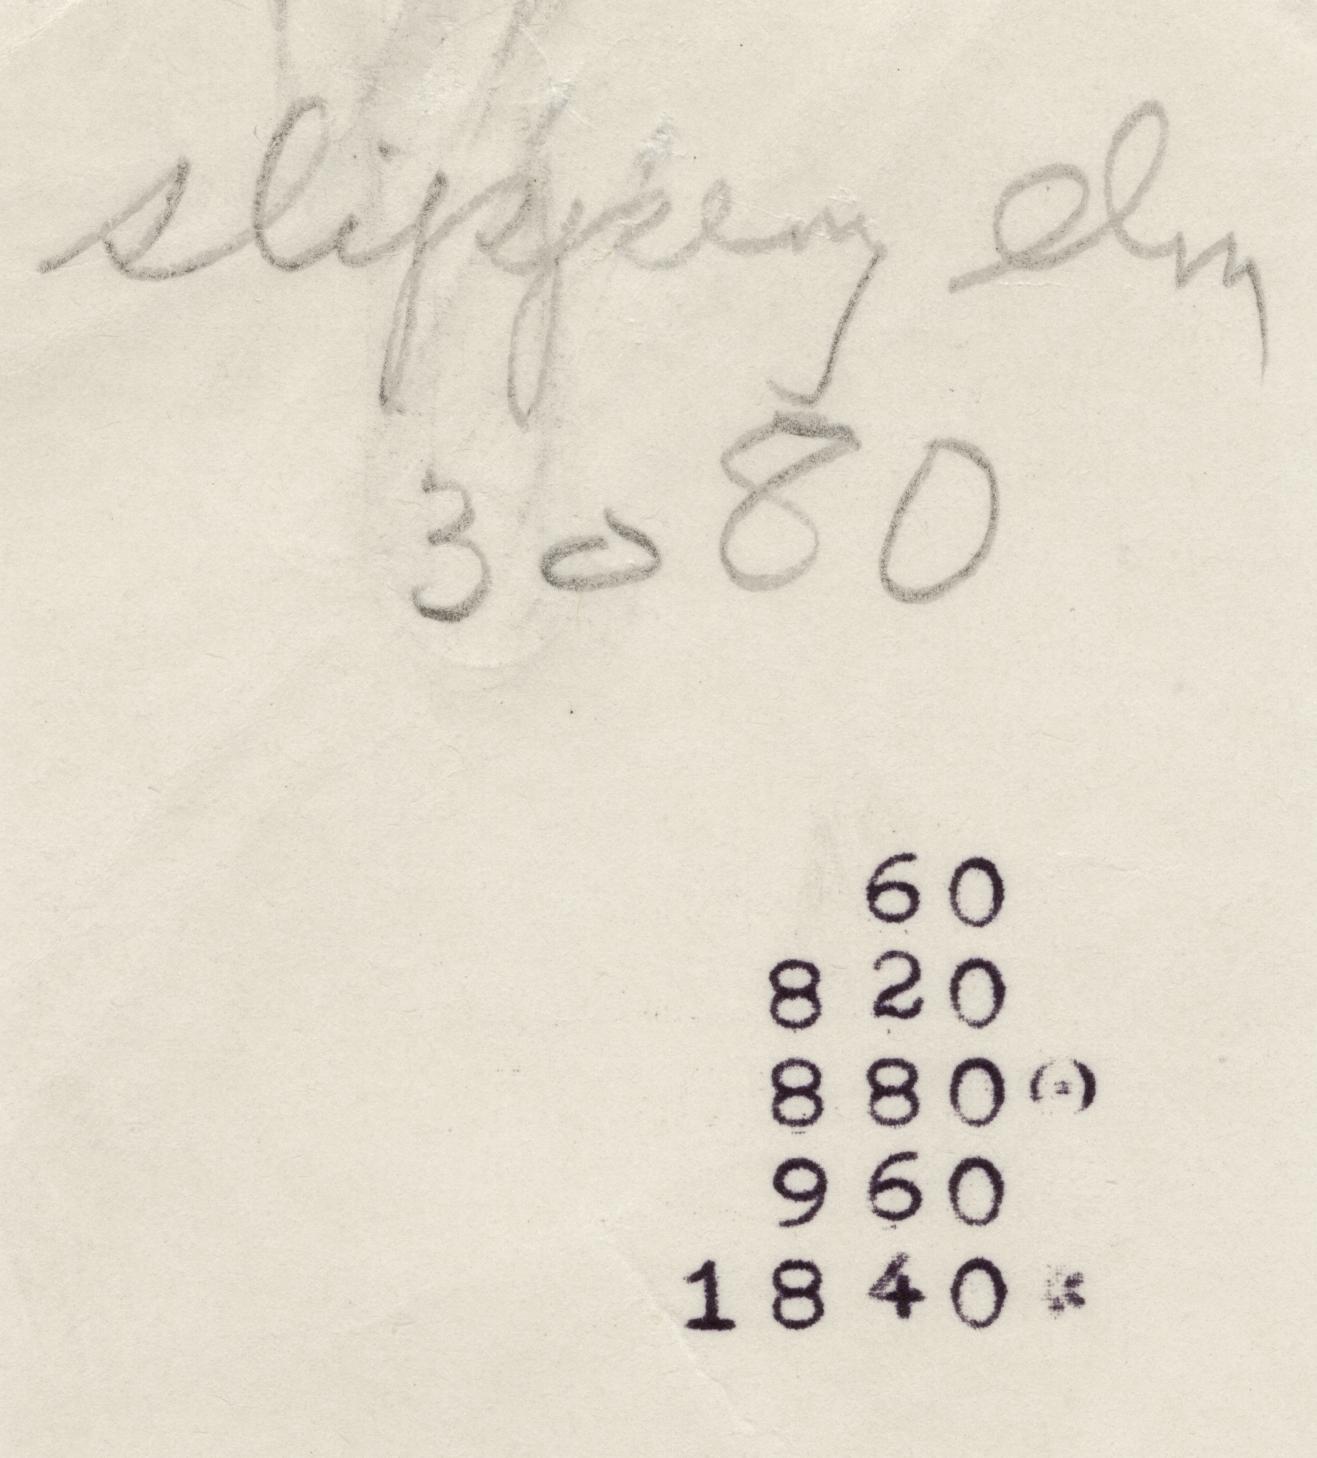 slippery elm
30 80
60
8 20
8 80 (·)
9 60
18 40 *